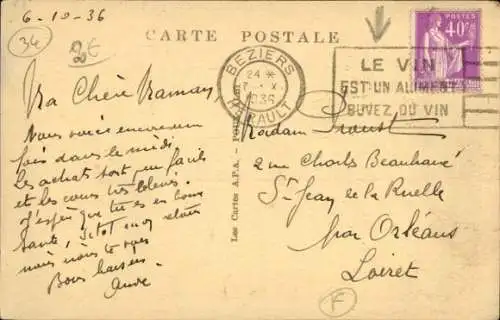 6-10-36
34
2€
CARTE POSTALE
BEZIERS
24 *
7 - X
1936
HERAULT
LE VIN
EST UN ALIMENT
BUVEZ DU VIN
POSTES
40c
Ma Chère Maman
Nous voici encore une
fois dans le midi
les achats sont peu faciles
et les cours très élevés.
J'espère que tu es en bonne
santé, sitôt mon
nous nous te
Bons baisers
Les Cartes A.P.A.
Madame
2 rue Charles Beauhaire
St Jean de la Ruelle
par Orléans
Loiret
F